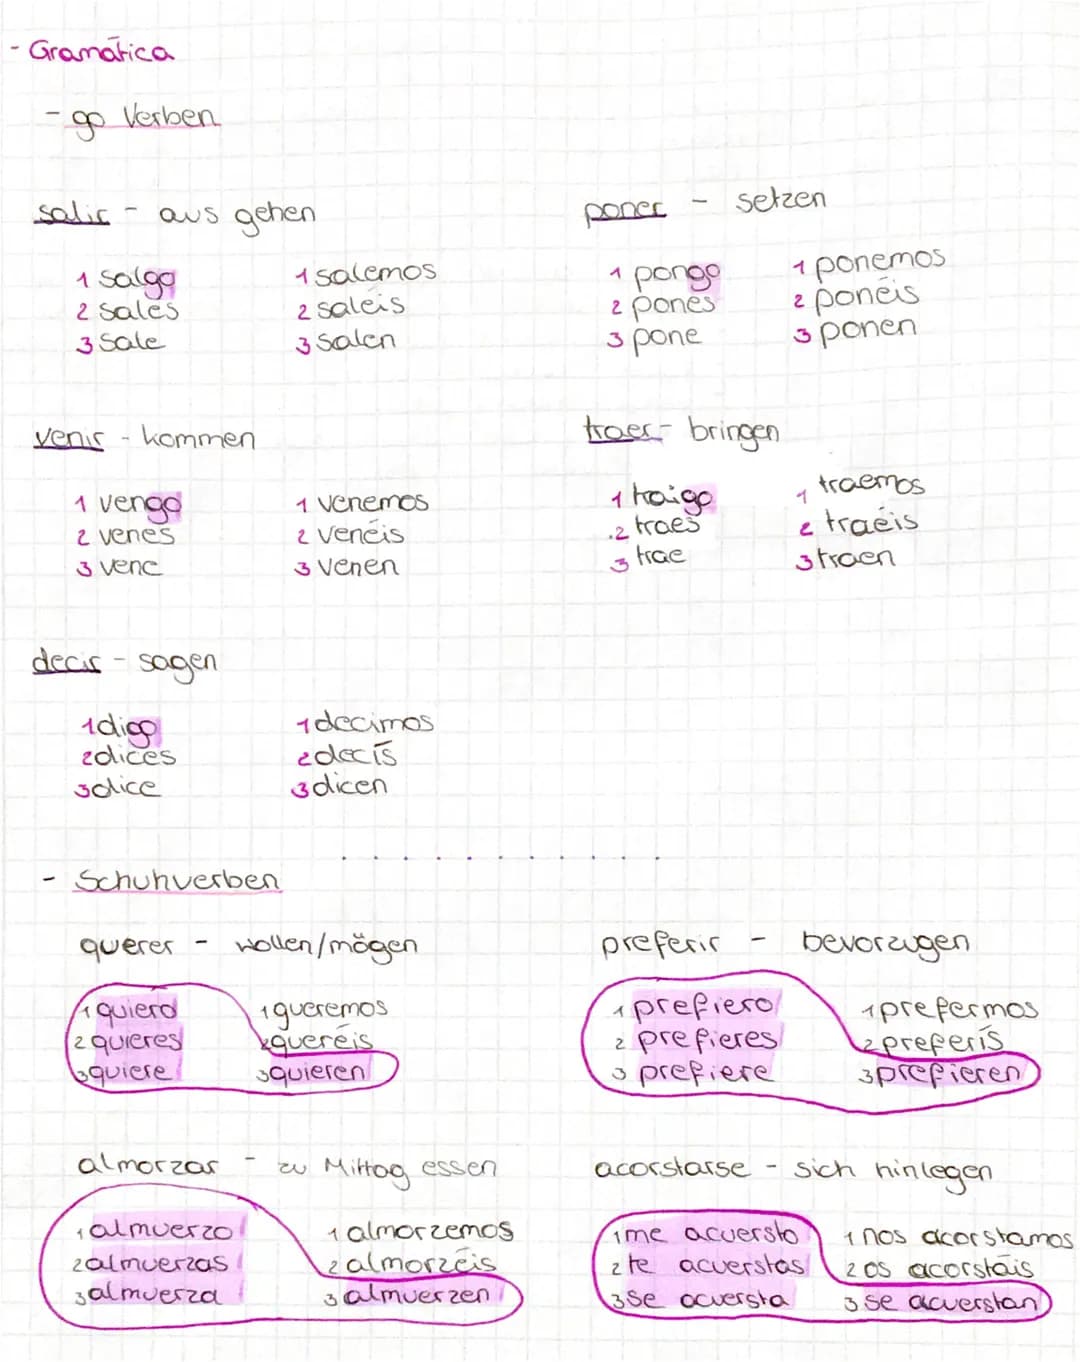 - Gramática
- go Verben
salir - aus gehen
1 salgo
2 sales
3 sale
1 salemos
2 saleis
3 salen
poner - setzen
1 pongo
2 pones
3 pone
1 ponemos
2 ponéis
3 ponen
venir - kommen
1 vengo
2 venes
3 vene
1 venemos
2 venéis
3 venen
traer - bringen
1 traigo
2 traes
3 trae
1 traemos
2 traéis
3 traen
decir - sagen
1 digo
2 dices
3 dice
1 decimos
2 decís
3 dicen
- Schuhverben
querer - wollen/mögen
1 quiero
2 quieres
3 quiere
1 queremos
2 queréis
3 quieren
preferir - bevorzugen
1 prefiero
2 prefieres
3 prefiere
1 prefermos
2 preferís
3 prefieren
almorzar - zu Mittag essen
1 almuerzo
2 almuerzas
3 almuerza
1 almorzemos
2 almorzéis
3 almuerzen
acorstarse - sich hinlegen
1 me acuersto
2 te acuerstas
3 se acuersta
1 nos acorstamos
2 os acorstáis
3 se acuerstan